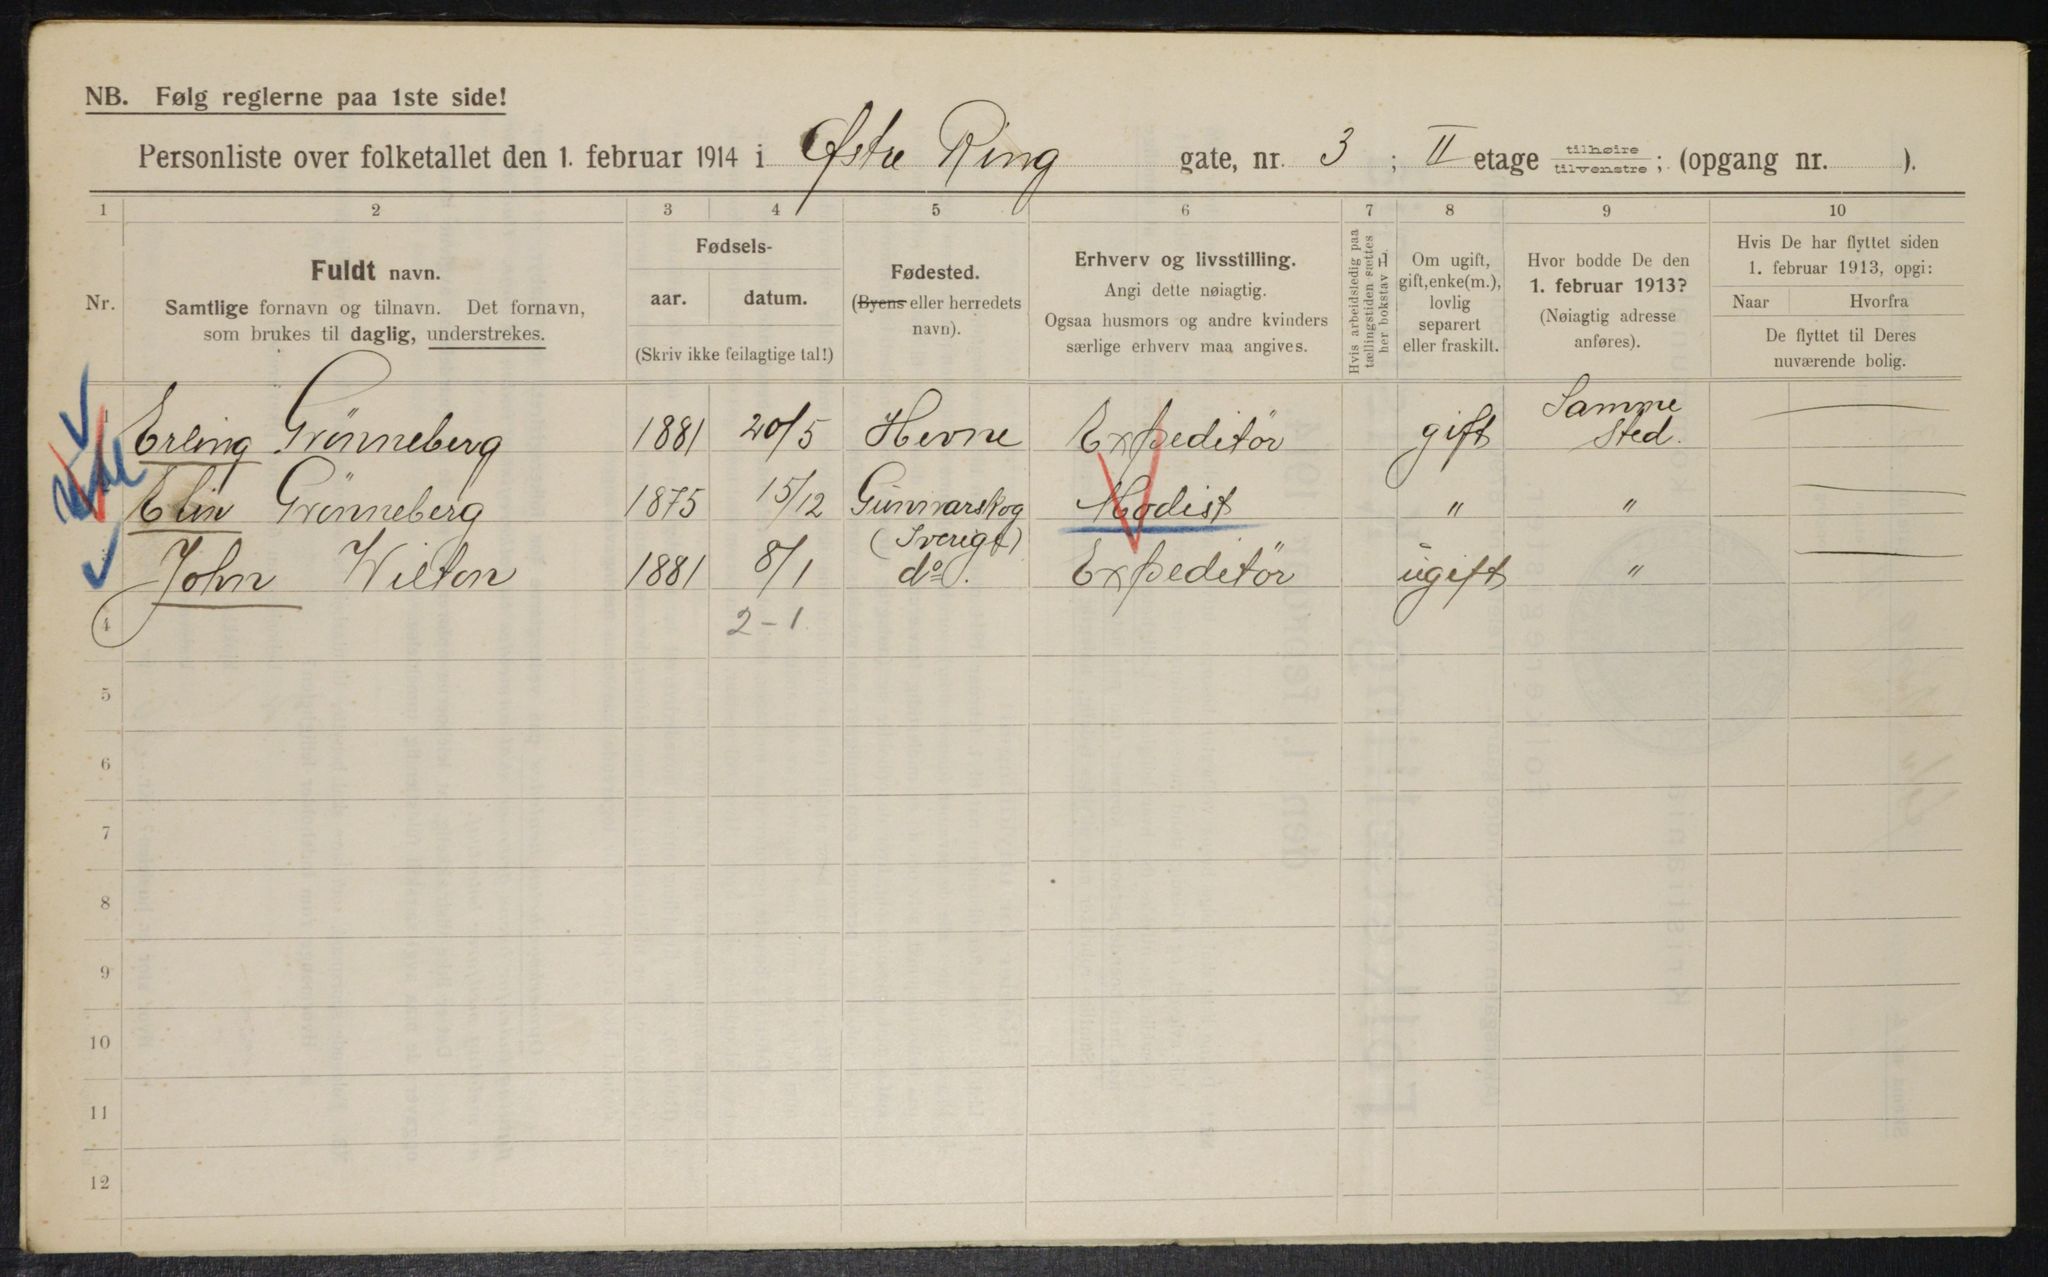 NB. Følg reglerne paa 1ste side!
Personliste over folketallet den 1. februar 1914 i Østre Ring gate, nr. 3 ; II etage tilhøire tilvenstre ; (opgang nr. ).
1 2 3 4 5 6 7 8 9 10
Nr.
Fuldt navn.
Samtlige fornavn og tilnavn. Det fornavn,
som brukes til daglig, understrekes.
Fødsels-
aar. datum.
(Skriv ikke feilagtige tal!)
Fødested.
(Byens eller herredets
navn).
Erhverv og livsstilling.
Angi dette nøiagtig.
Ogsaa husmors og andre kvinders
særlige erhverv maa angives.
Hvis arbeidsledig paa
tællingstiden sættes
her bokstav L
Om ugift,
gift, enke(m.),
lovlig
separert
eller fraskilt.
Hvor bodde De den
1. februar 1913?
(Nøiagtig adresse
anføres).
Hvis De har flyttet siden
1. februar 1913, opgi:
Naar Hvorfra
De flyttet til Deres
nuværende bolig.
1 Erling Grönneberg 1881 20/5 Hevne Expeditör gift Samme Sted. —
Elin Grönneberg 1875 15/12 Gunnarskog (Sverige) Modist " " —
John Wilton 1881 8/1 do. Expeditör ugift " —
4 2-1
5
6
7
8
9
10
11
12